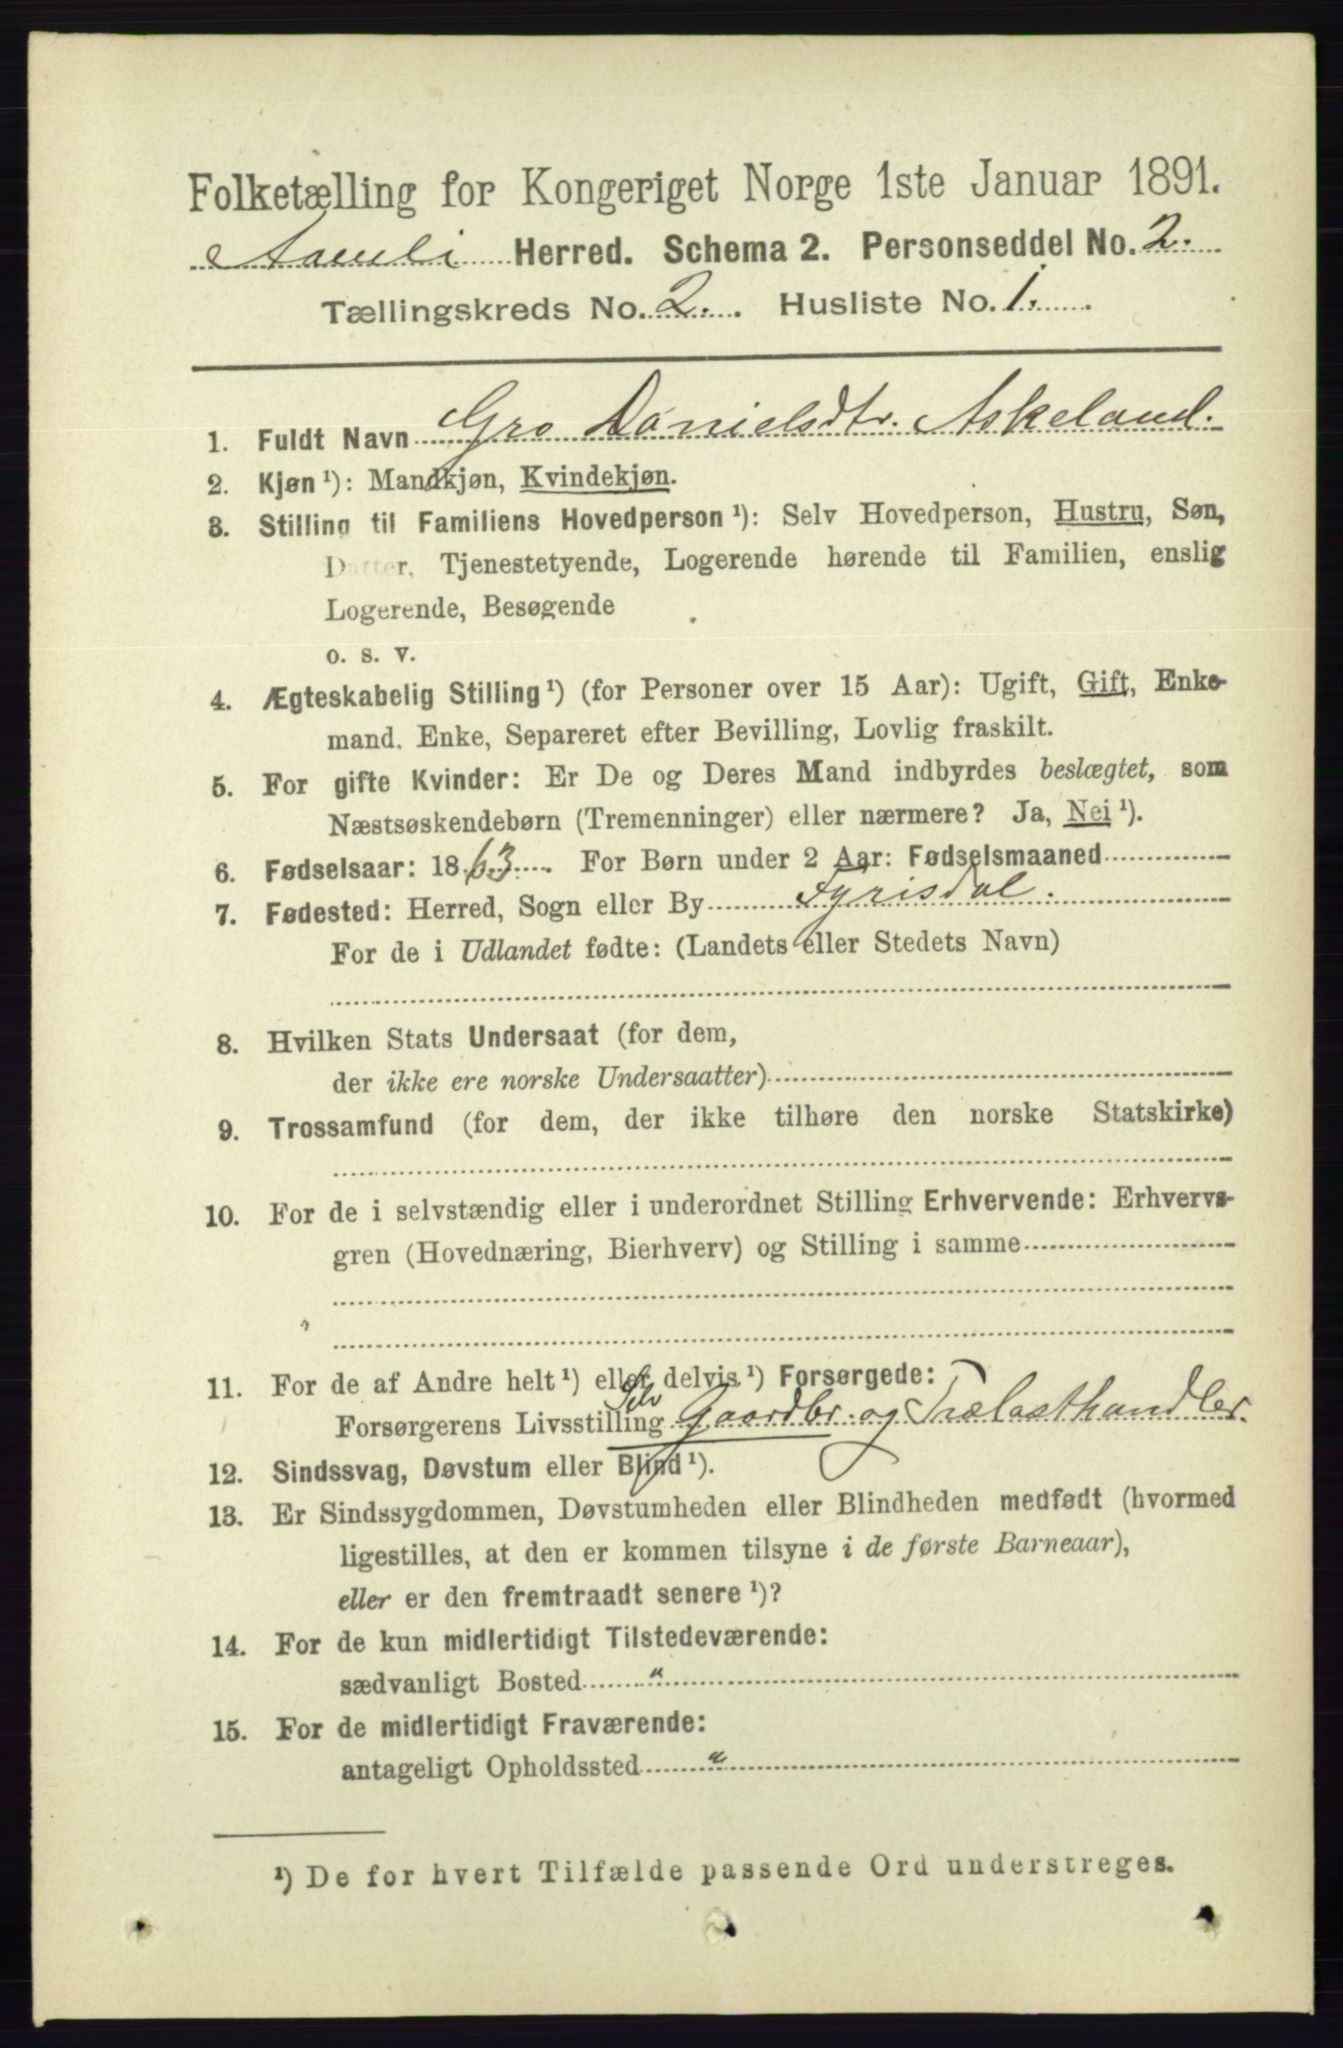 Folketælling for Kongeriget Norge 1ste Januar 1891.
Aamli Herred. Schema 2. Personseddel No. 2.
Tællingskreds No. 2. Husliste No. 1.
1. Fuldt Navn Gro Danielsdtr. Askeland.
2. Kjøn ¹): Mandkjøn, Kvindekjøn.
3. Stilling til Familiens Hovedperson ¹): Selv Hovedperson, Hustru, Søn,
Datter, Tjenestetyende, Logerende hørende til Familien, enslig
Logerende, Besøgende
o. s. v.
4. Ægteskabelig Stilling ¹) (for Personer over 15 Aar): Ugift, Gift, Enke-
mand, Enke, Separeret efter Bevilling, Lovlig fraskilt.
5. For gifte Kvinder: Er De og Deres Mand indbyrdes beslægtet, som
Næstsøskendebørn (Tremenninger) eller nærmere? Ja, Nei ¹).
6. Fødselsaar: 1863. For Børn under 2 Aar: Fødselsmaaned
7. Fødested: Herred, Sogn eller By Fyrisdal.
For de i Udlandet fødte: (Landets eller Stedets Navn)
8. Hvilken Stats Undersaat (for dem,
der ikke ere norske Undersaatter)
9. Trossamfund (for dem, der ikke tilhøre den norske Statskirke)
10. For de i selvstændig eller i underordnet Stilling Erhvervende: Erhvervs-
gren (Hovednæring, Bierhverv) og Stilling i samme
11. For de af Andre helt ¹) eller delvis ¹) Forsørgede:
Forsørgerens Livsstilling Selv Gaardbr. og Trælasthandler.
12. Sindssvag, Døvstum eller Blind ¹).
13. Er Sindssygdommen, Døvstumheden eller Blindheden medfødt (hvormed
ligestilles, at den er kommen tilsyne i de første Barneaar),
eller er den fremtraadt senere ¹)?
14. For de kun midlertidigt Tilstedeværende:
sædvanligt Bosted "
15. For de midlertidigt Fraværende:
antageligt Opholdssted "
¹) De for hvert Tilfælde passende Ord understreges.